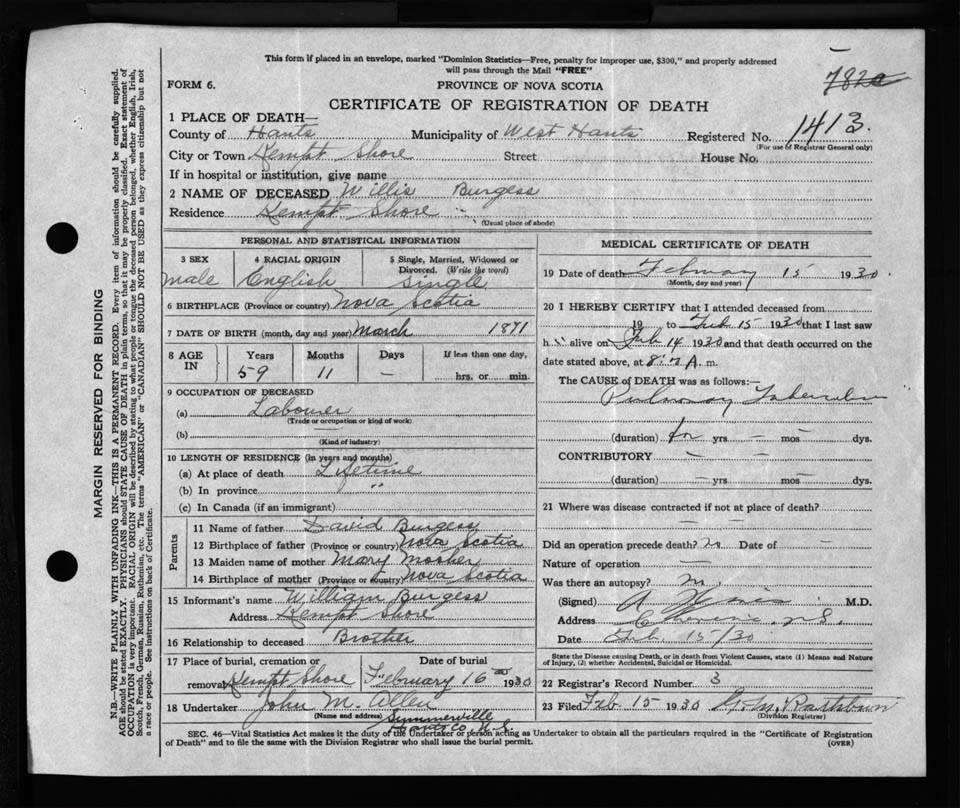 This form if placed in an envelope, marked "Dominion Statistics—Free, penalty for improper use, $300," and properly addressed
will pass through the Mail "FREE"
782a
FORM 6.
PROVINCE OF NOVA SCOTIA
CERTIFICATE OF REGISTRATION OF DEATH
1 PLACE OF DEATH—
County of Hants Municipality of West Hants Registered No. 1413.
(For use of Registrar General only)
City or Town Kempt Shore Street House No.
If in hospital or institution, give name
2 NAME OF DECEASED Willis Burgess
Residence Kempt Shore
(Usual place of abode)
PERSONAL AND STATISTICAL INFORMATION
3 SEX 4 RACIAL ORIGIN 5 Single, Married, Widowed or
Divorced. (Write the word)
male English Single
6 BIRTHPLACE (Province or country) Nova Scotia
7 DATE OF BIRTH (month, day and year) March 1871
8 AGE IN Years Months Days If less than one day,
59 11 — hrs. or min.
9 OCCUPATION OF DECEASED
(a) Labourer
(Trade or occupation or kind of work)
(b)
(Kind of industry)
10 LENGTH OF RESIDENCE (in years and months)
(a) At place of death Lifetime
(b) In province "
(c) In Canada (if an immigrant)
Parents
11 Name of father David Burgess
12 Birthplace of father (Province or country) Nova Scotia
13 Maiden name of mother Mary Mosher
14 Birthplace of mother (Province or country) Nova Scotia
15 Informant's name William Burgess
Address Kempt Shore
16 Relationship to deceased Brother
17 Place of burial, cremation or Date of burial
removal Kempt Shore February 16 1930
18 Undertaker John M. Allen
(Name and address) Summerville
Hants Co. N.S.
MEDICAL CERTIFICATE OF DEATH
19 Date of death February 15 1930
(Month, day and year)
20 I HEREBY CERTIFY that I attended deceased from
19 to Feb 15 1930 that I last saw
h alive on Feb 14 1930 and that death occurred on the
date stated above, at A. m.
The CAUSE OF DEATH was as follows:—
Pulmonary Tuberculosis
(duration) yrs — mos — dys.
CONTRIBUTORY — —
(duration) yrs mos dys.
21 Where was disease contracted if not at place of death?
— —
Did an operation precede death? no Date of —
Nature of operation —
Was there an autopsy? no
(Signed) M.D.
Address N.S.
Date Feb. 15/30
State the Disease causing Death, or in death from Violent Causes, state (1) Means and Nature
of Injury, (2) whether Accidental, Suicidal or Homicidal.
22 Registrar's Record Number 3
23 Filed Feb 15 1930 Rathbun
(Division Registrar)
SEC. 46—Vital Statistics Act makes it the duty of the Undertaker or person acting as Undertaker to obtain all the particulars required in the "Certificate of Registration
of Death" and to file the same with the Division Registrar who shall issue the burial permit.
(OVER)
MARGIN RESERVED FOR BINDING
N.B.—WRITE PLAINLY WITH UNFADING INK—THIS IS A PERMANENT RECORD. Every item of information should be carefully supplied.
AGE should be stated EXACTLY. PHYSICIANS should STATE CAUSE OF DEATH in plain terms, so that it may be properly classified. Exact statement of
OCCUPATION is very important. RACIAL ORIGIN will be described by stating to what people or tongue the deceased person belonged, whether English, Irish,
Scotch, French, German, Russian, Ruthenian, etc. The terms "AMERICAN" or "CANADIAN" SHOULD NOT BE USED as they express citizenship but not
a race or people. See instructions on back of Certificate.